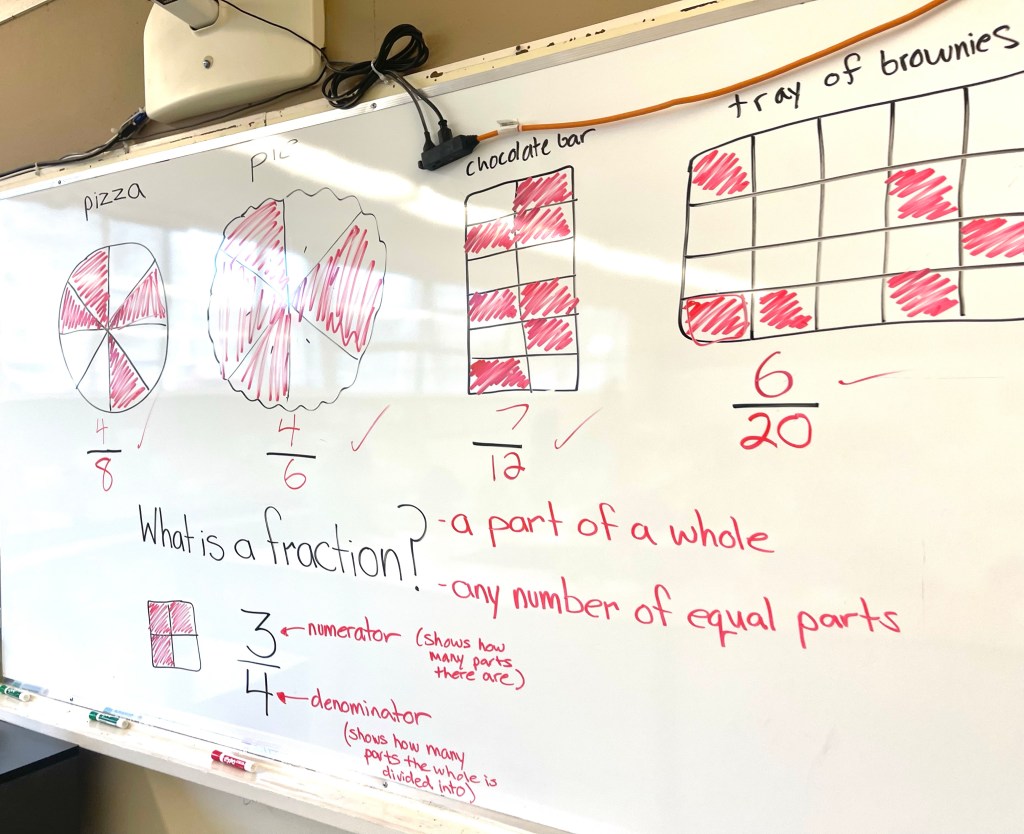 pizza
pie
chocolate bar
tray of brownies
4
8
4
6
7
12
6
20
What is a fraction?
-a part of a whole
-any number of equal parts
3
4
numerator (shows how
many parts
there are)
denominator
(shows how many
parts the whole is
divided into)